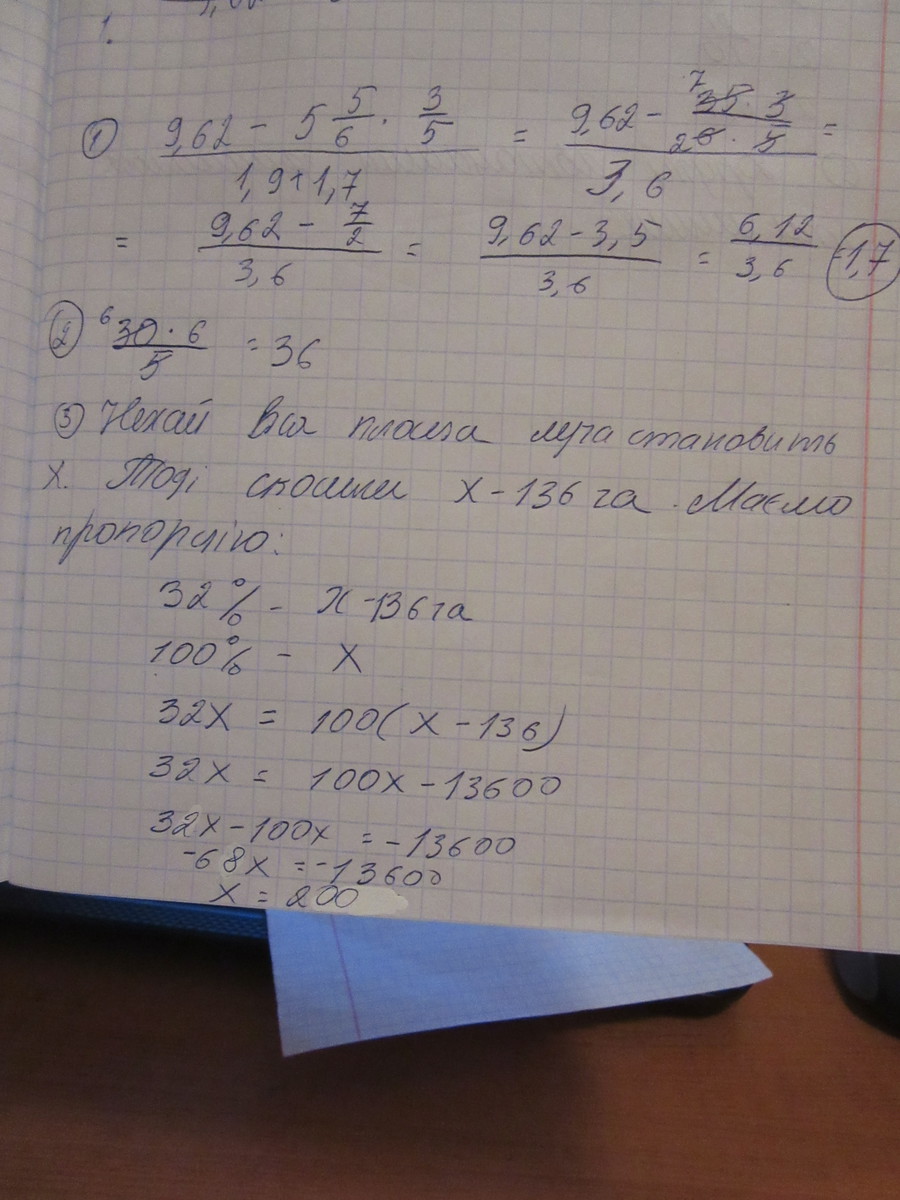 1.
① (9,62 - 5 5/6 · 3/5) / (1,9+1,7) = (9,62 - (35 · 3)/(6 · 5)) / 3,6 =
= (9,62 - 7/2) / 3,6 = (9,62 - 3,5) / 3,6 = 6,12 / 3,6 = 1,7
② (30 · 6) / 5 = 36
③ Нехай вся площа луга становить
x. Тоді скосили x - 136 га. Маємо
пропорцію:
32% - x - 136 га
100% - x
32x = 100(x - 136)
32x = 100x - 13600
32x - 100x = - 13600
-68x = - 13600
x = 200